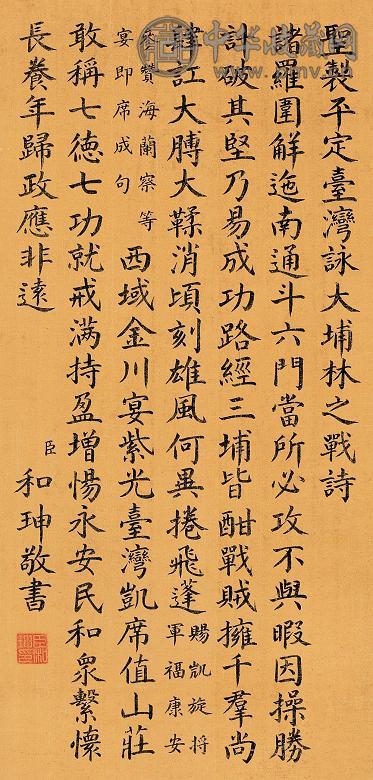 聖製平定臺灣詠大埔林之戰詩
諸羅圍解迤南通斗六門當所必攻不與暇因操勝
計破其堅乃易成功路經三埔皆酣戰賊擁千羣尚
訌大膊大鞣消頃刻雄風何異捲飛蓬
賜凱旋將
軍福康安
參贊海蘭察等
宴即席成句
西域金川宴紫光臺灣凱席值山莊
敢稱七德七功就戒滿持盈增惕永安民和眾繫懷
長養年歸政應非遠
臣
和珅敬書
中华收藏网